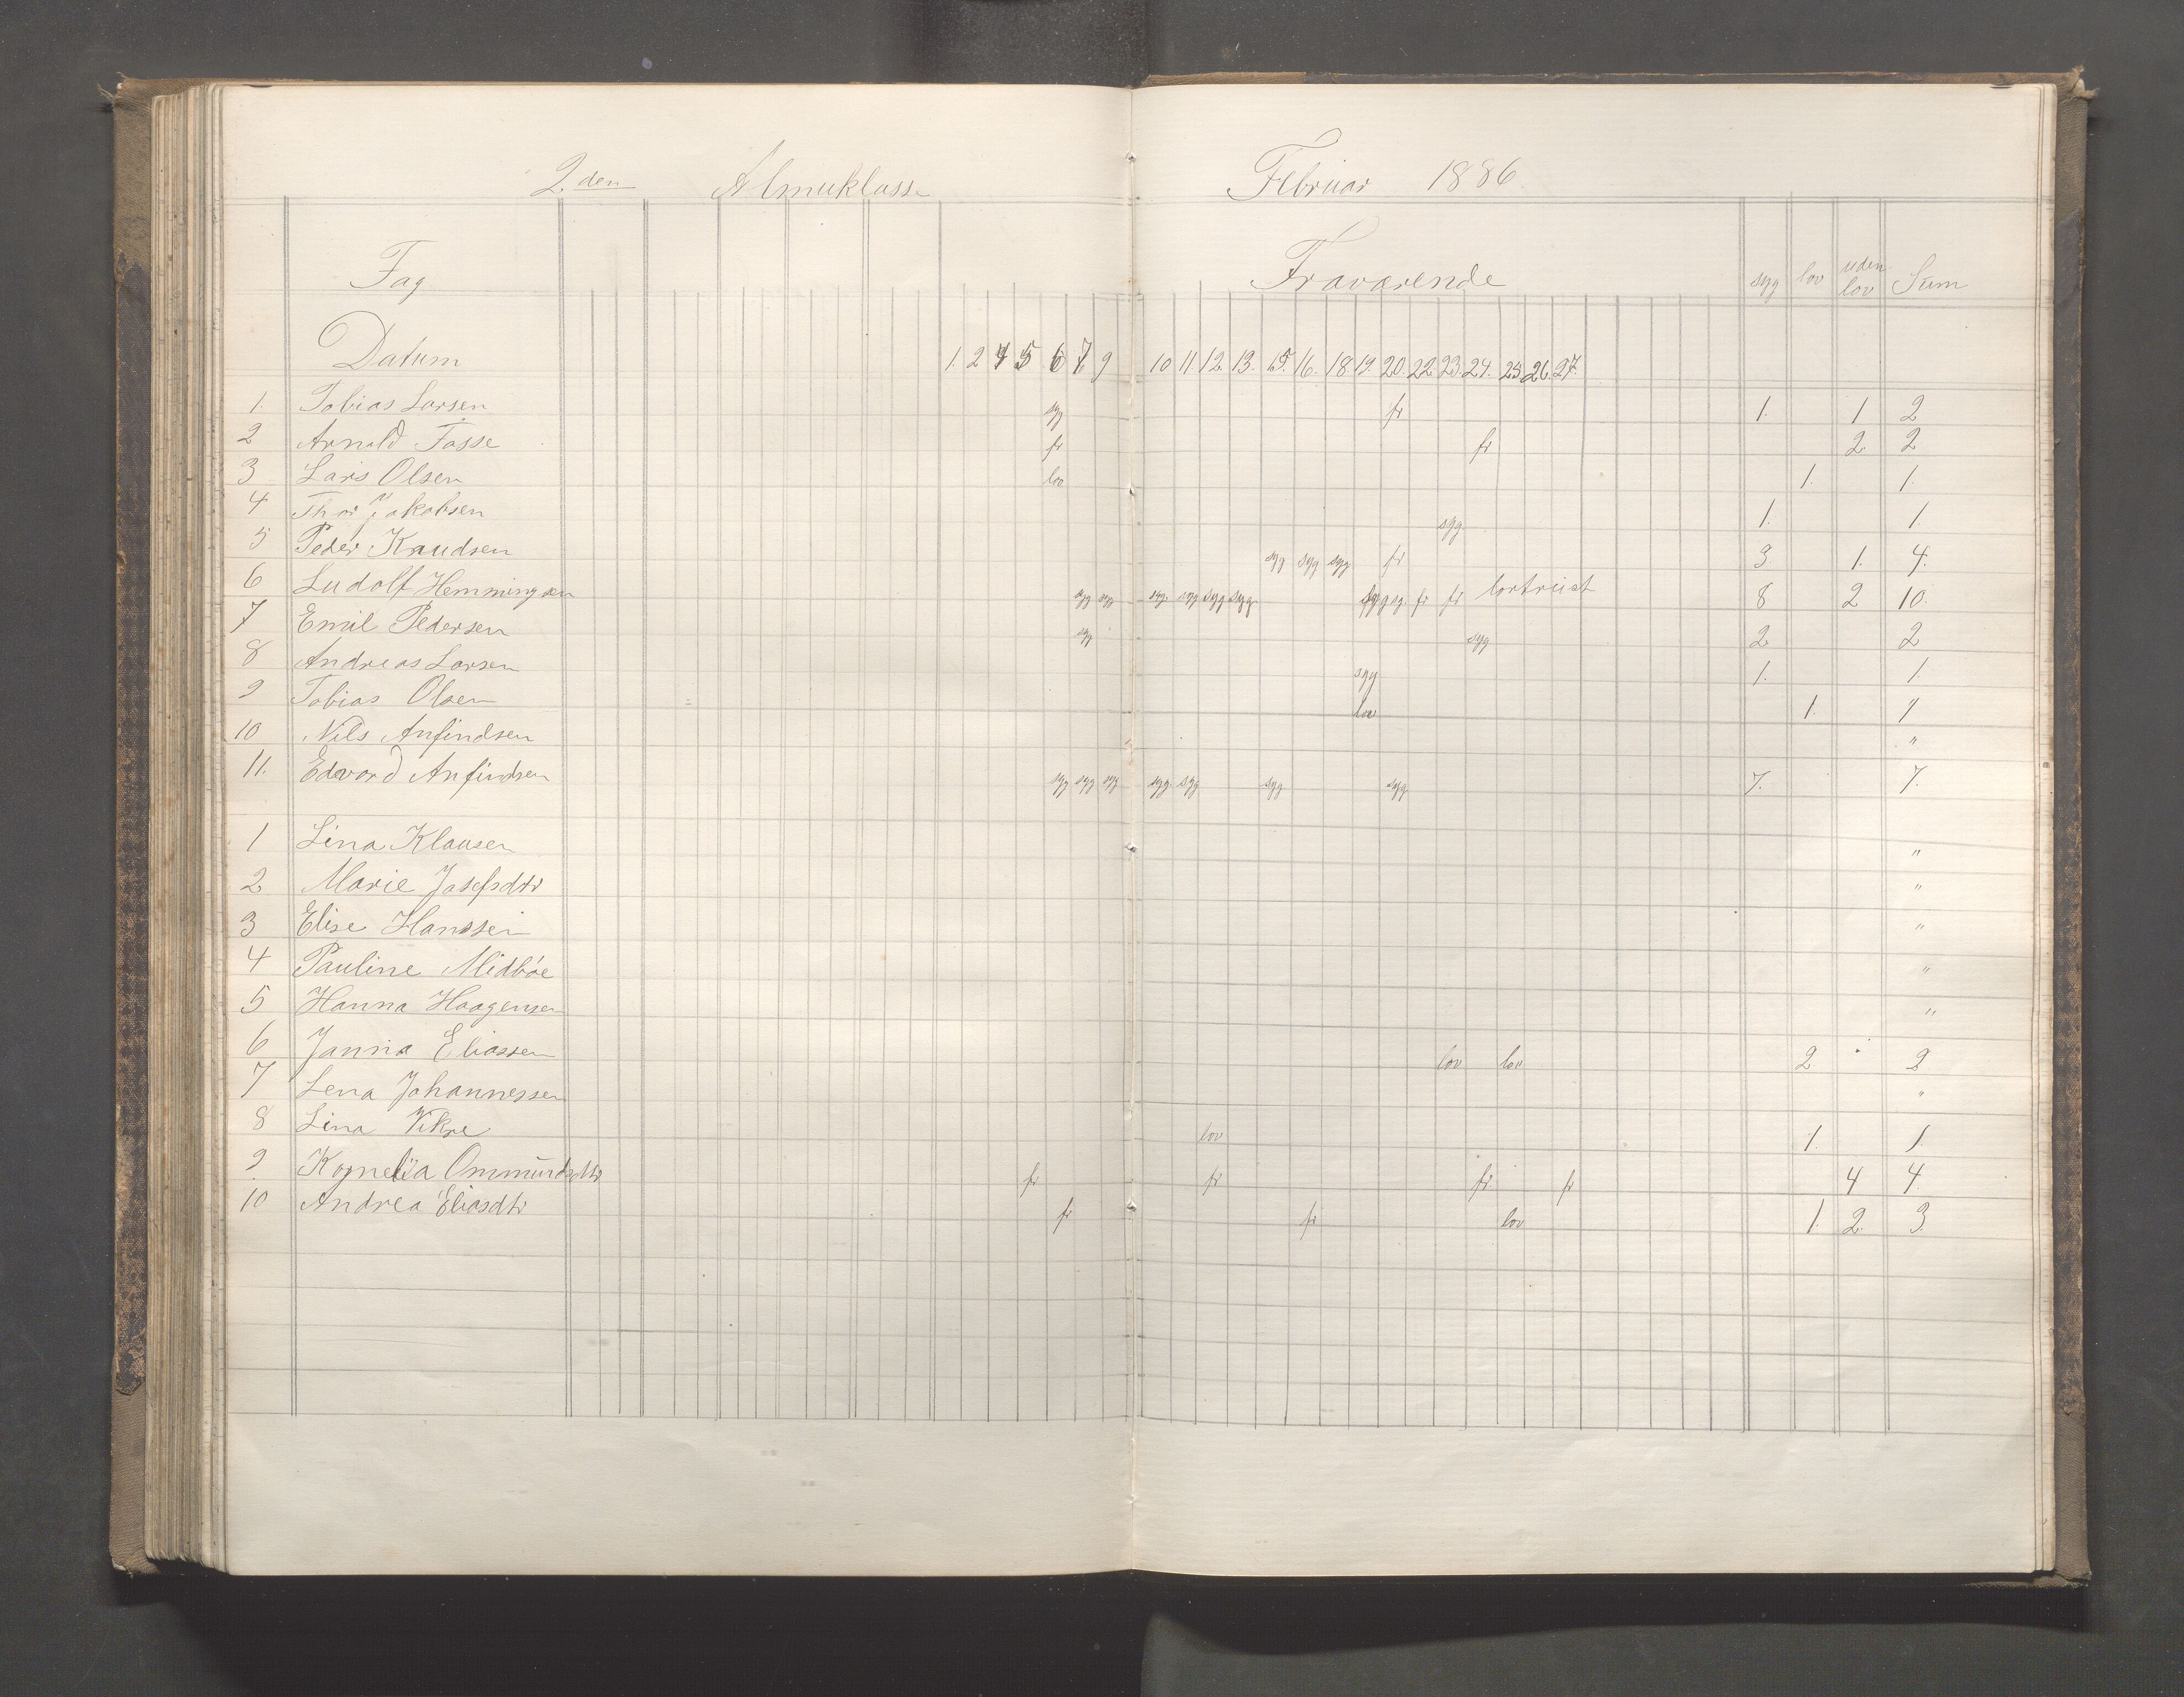 2den Almuklasse Februar 1886
Fag Fraværende syg lov uden lov Sum
Datum 1. 2 4 5 6 7 9 10 11. 12. 13. 15. 16. 18 19. 20. 22. 23. 24. 25 26. 27.
1. Tobias Larsen syg fr 1. 1 2
2 Arnold Tasse fr fr 2 2
3 Lars Olsen lov 1. 1.
4 Thor Jakobsen syg. 1. 1.
5 Peder Knudsen syg syg syg fr 3 1. 4.
6 Ludolf Hemmingsen syg syg syg. syg syg syg syg sy. fr fr bortreist 8 2 10.
7 Emil Pedersen syg syg 2 2
8 Andreas Larsen syg 1. 1.
9 Tobias Olsen lov 1. 1
10 Nils Anfindsen "
11. Edvard Anfindsen syg syg syg syg. syg syg syg. 7. 7.
1 Lina Klausen "
2 Marie Josefsdtr "
3 Elise Hanssen "
4 Pauline Midbøe "
5 Hanna Haagensen "
6 Janna Eliassen lov lov 2 2
7 Lena Johannessen "
8 Lina Vikre lov 1. 1.
9 Kornelia Ommundsdtr fr fr fr fr 4 4.
10 Andrea Eliasdtr fr fr lov 1. 2. 3.